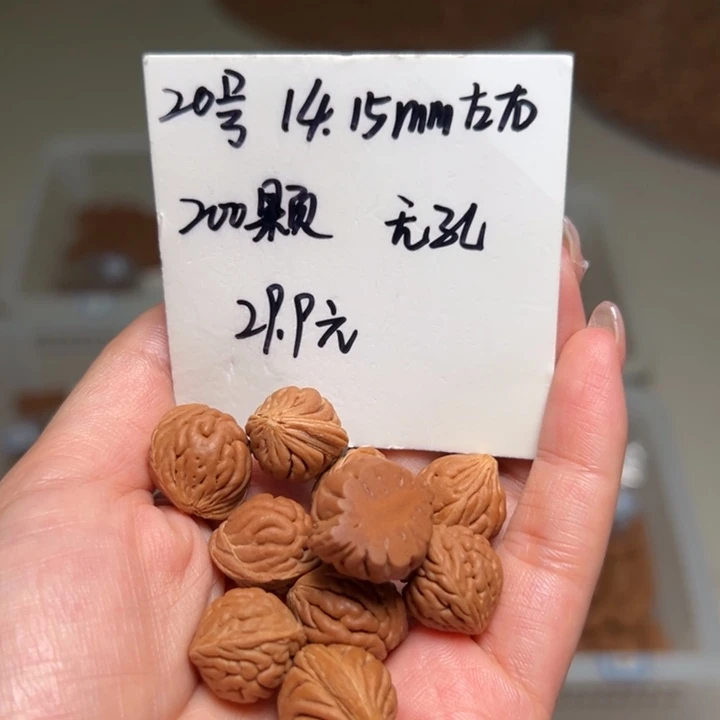 20号 14.15mm左右
200颗 无孔
29.9元